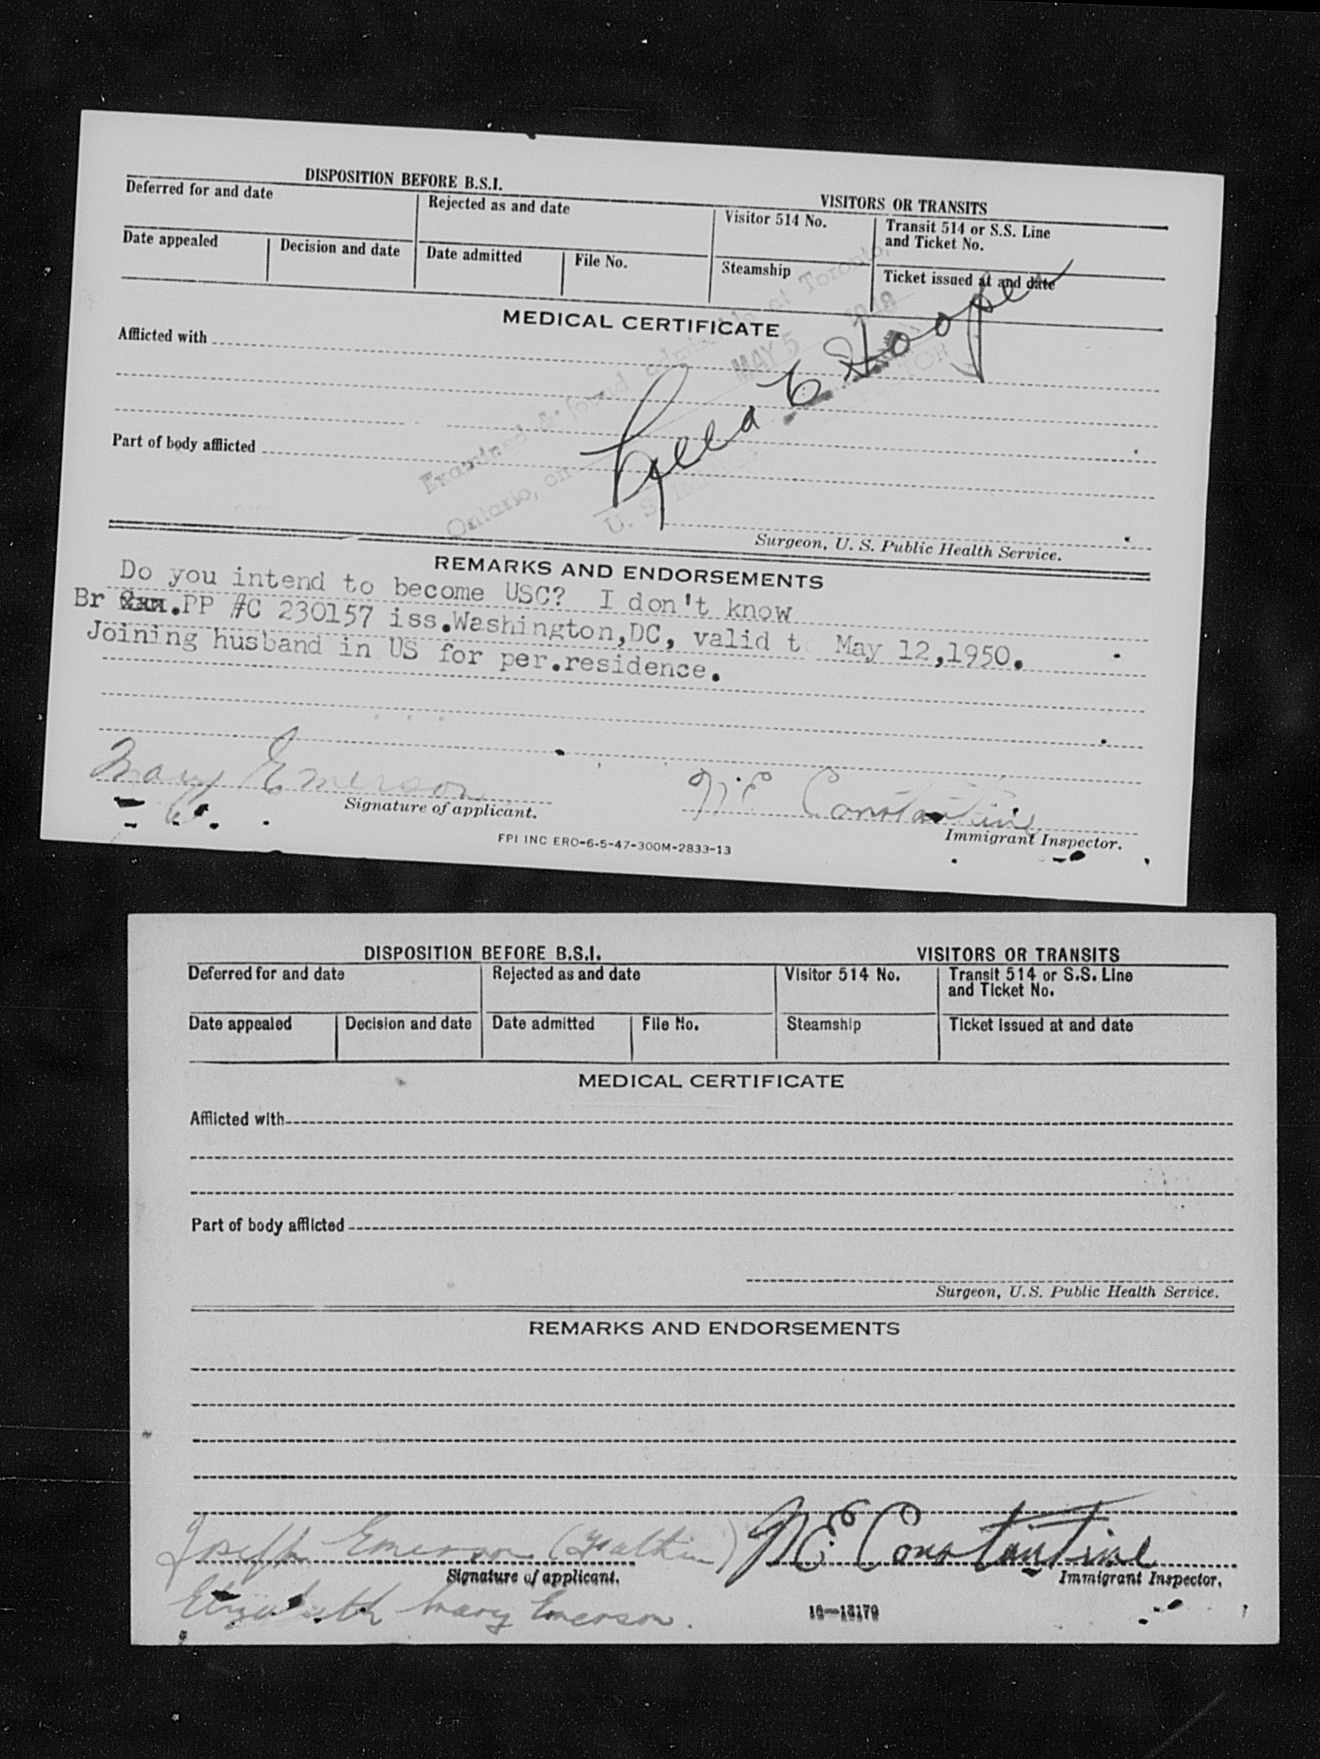 DISPOSITION BEFORE B.S.I.
VISITORS OR TRANSITS
Deferred for and date
Rejected as and date
Visitor 514 No.
Transit 514 or S.S. Line
and Ticket No.
Date appealed
Decision and date
Date admitted
File No.
Steamship
Ticket issued at and date
MEDICAL CERTIFICATE
Afflicted with
Part of body afflicted
Examined & found admissible at Toronto,
Ontario, on MAY 5
U. S.
Hooper
Surgeon, U. S. Public Health Service.
REMARKS AND ENDORSEMENTS
Do you intend to become USC? I don't know
Br .PP #C 230157 iss.Washington,DC, valid t May 12,1950.
Joining husband in US for per.residence.
Mary Emerson
N E Constantine
Signature of applicant.
Immigrant Inspector.
FPI INC ERO-6-5-47-300M-2833-13
DISPOSITION BEFORE B.S.I.
VISITORS OR TRANSITS
Deferred for and date
Rejected as and date
Visitor 514 No.
Transit 514 or S.S. Line
and Ticket No.
Date appealed
Decision and date
Date admitted
File No.
Steamship
Ticket issued at and date
MEDICAL CERTIFICATE
Afflicted with
Part of body afflicted
Surgeon, U.S. Public Health Service.
REMARKS AND ENDORSEMENTS
Joseph Emerson
N E Constantine
Signature of applicant.
Immigrant Inspector.
Elizabeth Mary Emerson.
16—13170